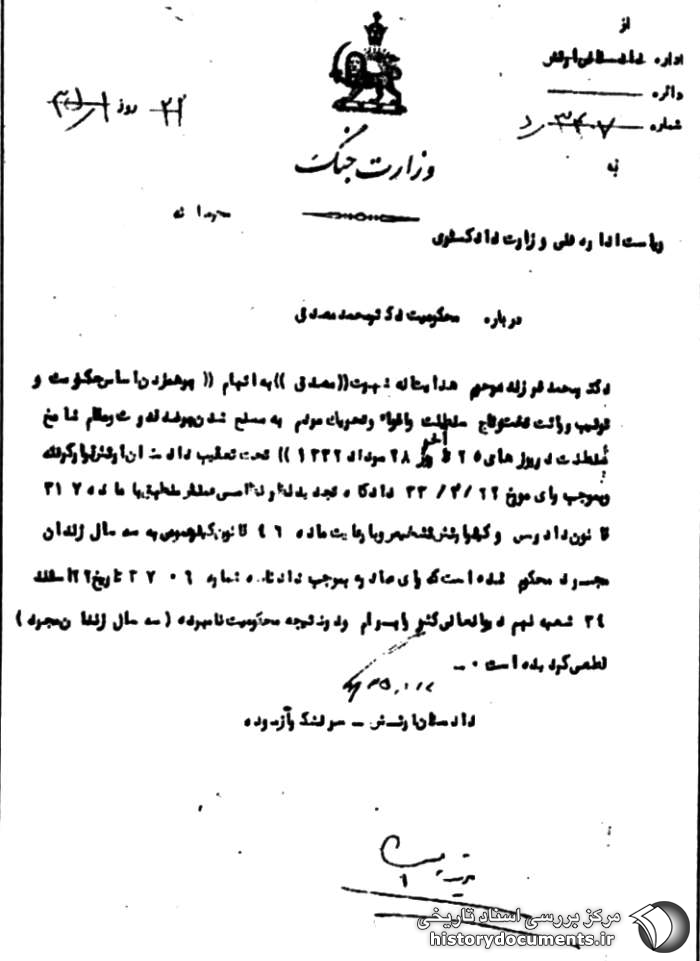 از
اداره دادستانی ارتش
دائره
شماره ۳۴۰۷ د
به
روز
وزارت جنگ
محرمانه
ریاست اداره فنی وزارت دادگستری
درباره محکومیت دکتر محمد مصدق
دکتر محمد فرزند مرحوم هدایت‌اله شهرت ((مصدق)) به اتهام ((بهمزدن اساس حکومت و
ترتیب وراثت تخت و تاج سلطنت و اغواء و تحریک مردم به مسلح شدن برضد قدرت و مقام شامخ
سلطنت در روزهای ۲۵ تا آخر روز ۲۸ مرداد ۱۳۳۲)) تحت تعقیب دادستان ارتش قرار گرفته
و بموجب رای مورخ ۲۲/۲/۳۳ دادگاه تجدیدنظر مستند بماده ۳۱۷
قانون دادرسی و کیفر ارتش و با رعایت ماده ۴۶ قانون کیفر عمومی به سه سال زندان
مجرد محکوم شده است که رای صادره بموجب دادنامه شماره ۲۷۰۶ تاریخ اسفند
۳۴ شعبه نهم دیوانعالی کشور ابرام و در نتیجه محکومیت نامبرده (سه سال زندان مجرد)
قطعی گردیده است ۰ -
دادستان ارتش - سرلشگر آزموده
مرکز بررسی اسناد تاریخی
historydocuments.ir